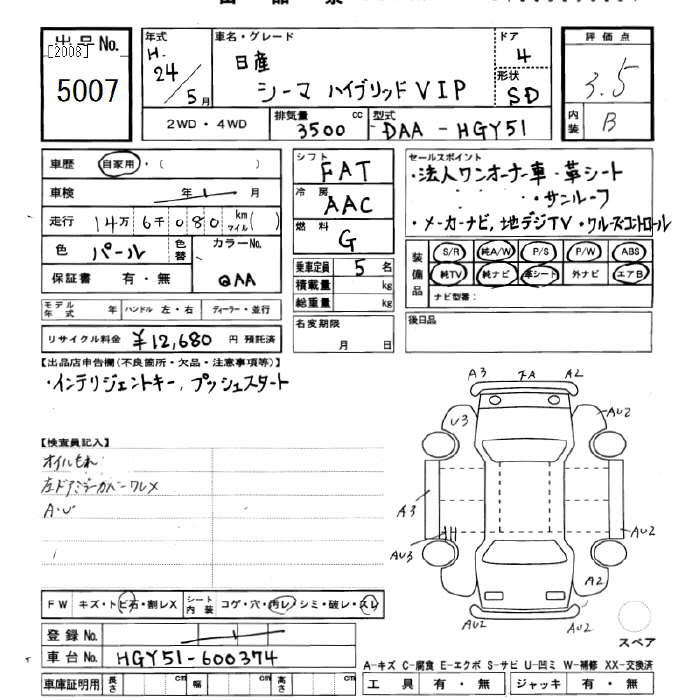 出品No. [2008] 5007
年式 H. 24/5月
車名・グレード 日産 シーマ ハイブリッドVIP
ドア 4
形状 SD
評価点 3.5
内装 B
2WD・4WD
排気量 3500 cc
型式 DAA-HGY51
車歴 自家用・( )
車検 年 月
走行 14万6千080 km マイル( )
色 パール 色替 カラーNo. QAA
保証書 有・無
シフト FAT
冷房 AAC
燃料 G
乗車定員 5名
積載量 kg
総重量 kg
セールスポイント
・法人ワンオーナー車・革シート
・サンルーフ
・メーカーナビ,地デジTV・クルーズコントロール
装備品 S/R 純A/W P/S P/W ABS
純TV 純ナビ 革シート 外ナビ エアB
ナビ型番:
モデル年式 年 ハンドル 左・右 ディーラー・並行
リサイクル料金 ¥12,680 円 預託済
名変期限 月 日
後日品
【出品店申告欄(不良箇所・欠品・注意事項等)】
・インテリジェントキー, プッシュスタート
【検査員記入】
オイルもれ
左ドアミラーカバーワレX
A・U
A3 FA A2
U3 AU2
A3 AU3 AU2
A2
AU2 AU2
スペア
FW キズ・トビ石・割レX シート内装 コゲ・穴・汚レ・シミ・破レ・スレ
登録No.
車台No. HGY51-600374
車庫証明用 長さ cm 幅 cm 高さ cm
A-キズ C-腐食 E-エクボ S-サビ U-凹ミ W-補修 XX-交換済
工具 有・無 ジャッキ 有・無